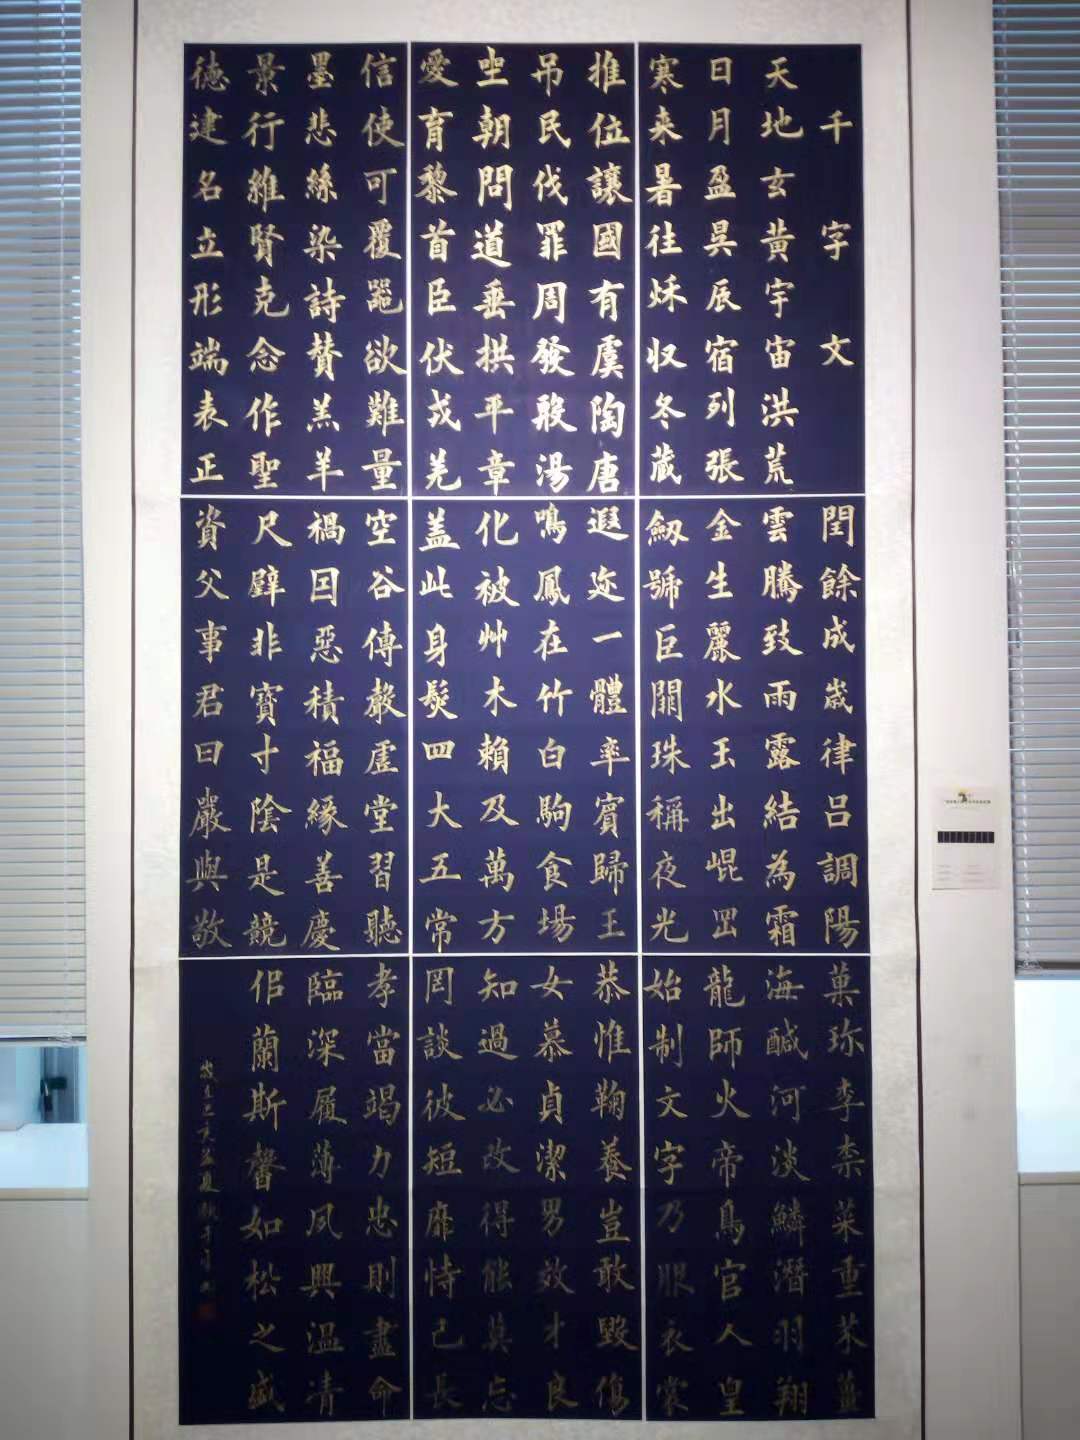 千字文
天地玄黃宇宙洪荒
日月盈昃辰宿列張
寒来暑往秌収冬藏
閏餘成歲律吕調陽
雲騰致雨露結為霜
金生麗水玉出崐岡
劔號巨闕珠稱夜光
菓珎李柰菜重芥薑
海鹹河淡鱗潛羽翔
龍師火帝鳥官人皇
始制文字乃服衣裳
推位讓國有虞陶唐
吊民伐罪周發殷湯
坐朝問道垂拱平章
愛育黎首臣伏戎羌
遐迩一體率賓歸王
鳴鳳在竹白駒食場
化被艸木賴及萬方
蓋此身髮四大五常
恭惟鞠養豈敢毀傷
女慕貞潔男效才良
知過必改得能莫忘
罔談彼短靡恃己長
信使可覆器欲難量
墨悲絲染詩贊羔羊
景行維賢克念作聖
德建名立形端表正
空谷傳聲虛堂習聽
禍囙惡積福緣善慶
尺璧非寶寸陰是競
資父事君曰嚴與敬
孝當竭力忠則盡命
臨深履薄夙興溫清
佀蘭斯馨如松之盛
歲在己亥孟夏